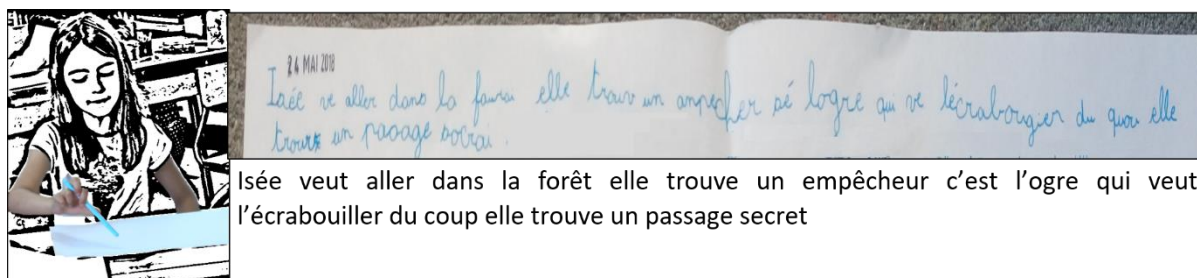 24 MAI 2018
Isée ve aller dans la faurai elle trouv un ampecher sé logre qui ve lécrabougier du quou elle
trouve un pasage socrai.
Isée veut aller dans la forêt elle trouve un empêcheur c’est l’ogre qui veut
l’écrabouiller du coup elle trouve un passage secret